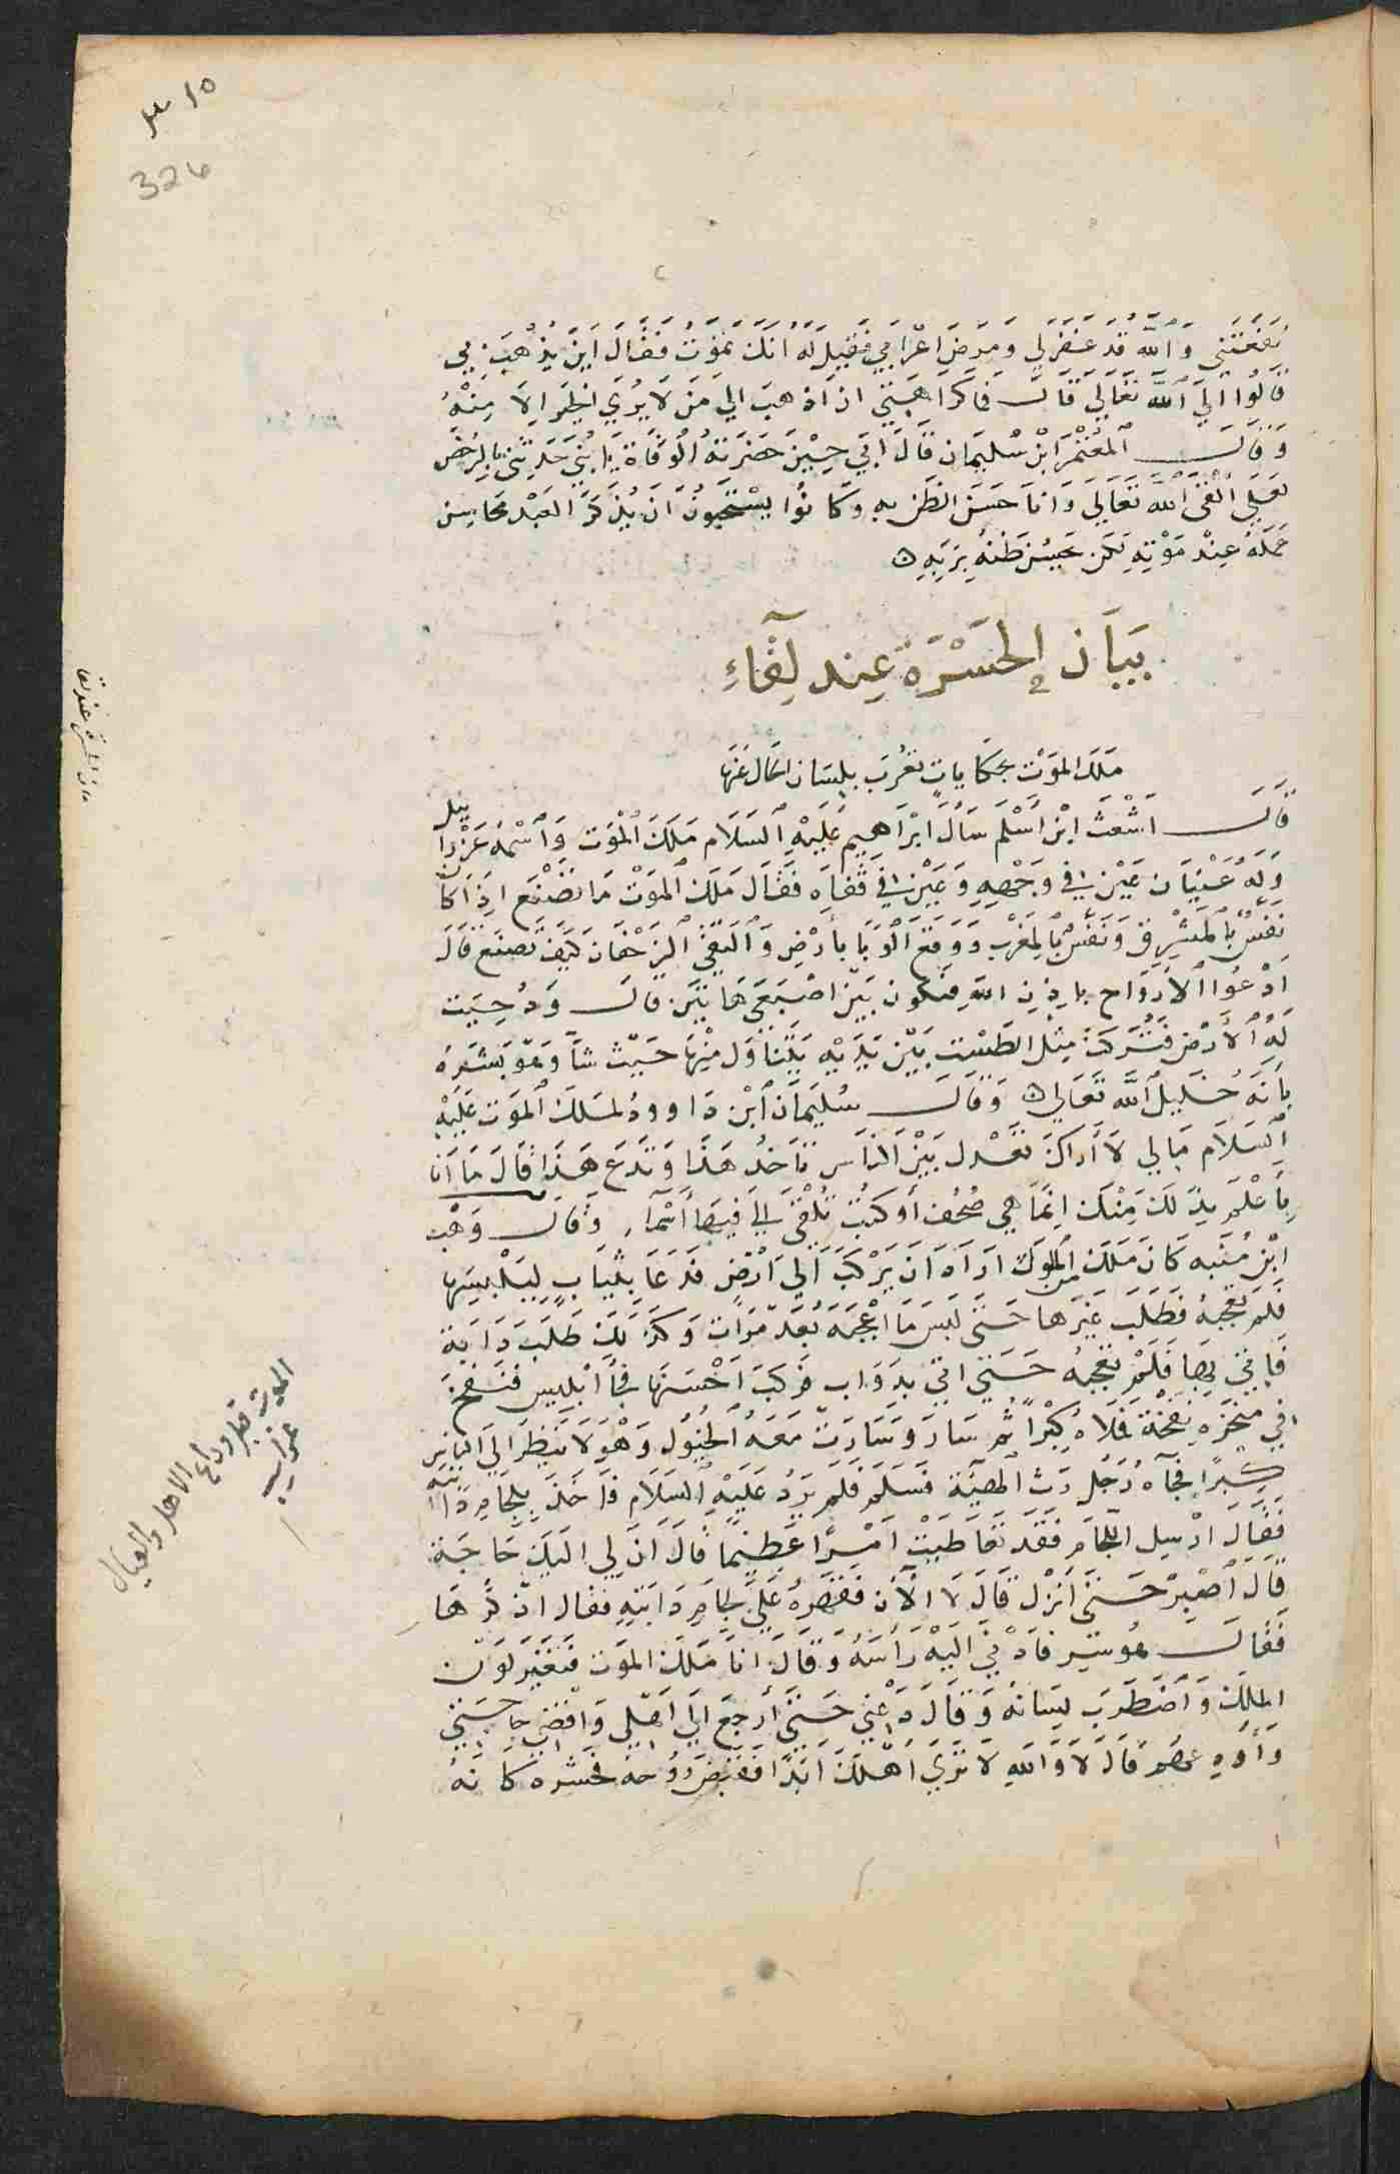 ٣١٥
326
نفعتني والله قد غفر لي ومرض اعرابي فقيل له انك تموت فقال اين يذهب بي
قالوا الى الله تعالى قال فما كراهيتي ان اذهب الى من لا يرى الخير الا منه
وقال المعتمر ابن سليمان قال ابي حين حضرته الوفاة يا بني حدثني بالرخص
لعلي القى الله تعالى وانا حسن الظن به وكانوا يستحبون ان يذكر العبد محاسن
عمله عند موته لكي يحسن ظنه بربه
بيان الحسرة عند لقاء
ملك الموت بحكايات تعرب بلسان الحال عنها
قال اشعث ابن اسلم سأل ابراهيم عليه السلام ملك الموت واسمه عزرائيل
وله عينان عين في وجهه وعين في قفاه فقال ملك الموت ما تصنع اذا كان
نفس بالمشرق ونفس بالمغرب ووقع الوبا بأرض والتقى الزحفان كيف تصنع قال
ادعوا الارواح باذن الله فتكون بين اصبعي هاتين قال ودحيت
له الأرض فتركت مثل الطست بين يديه يتناول منها حيث شآ وهو يبشره
بأنه خليل الله تعالى وقال سليمان ابن داوود لملك الموت عليه
السلام ما لي لا أراك تعدل بين الناس تأخذ هذا وتدع هذا قال ما انا
بأعلم بذلك منك انما هي صحف أو كتب تلقى الي فيها أسمآء وقال وهب
ابن منبه كان ملك من الملوك اراد ان يركب الى ارض فدعا بثياب ليلبسها
فلم تعجبه فطلب غيرها حتى لبس ما اعجبه بعد مرات وكذلك طلب دابة
فاتي بها فلم تعجبه حتى اتي بدواب فركب احسنها فجأ ابليس فنفخ
في منخره نفخة فملاه كبراً ثم سار وسارت معه الخيول وهو لا ينظر الى الناس
كبراً فجآه رجل رث الهيئة فسلم فلم يرد عليه السلام فاخذ بلجام دابته
فقال ارسل اللجام فقد تعاطيت امراً عظيماً قال ان لي اليك حاجة
قال اصبر حتى انزل قال لا الآن فقهره على لجام دابته فقال اذكرها
فقال هو سر فادنى اليه رأسه وقال انا ملك الموت فتغير لون
الملك واضطرب لسانه وقال دعني حتى أرجع الى اهلي واقضي حاجتي
وأودعهم قال لا والله لا ترى اهلك ابداً فقبض روحه فخر كانه
الموت قبل وداع الاهل والعيال